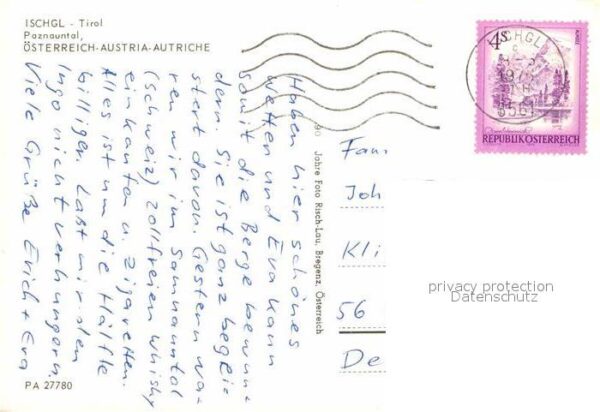 ISCHGL - Tirol
Paznauntal,
ÖSTERREICH-AUSTRIA-AUTRICHE
Haben hier schönes
Wetter und Eva kann
somit die Berge bewun-
dern. Sie ist ganz begei-
stert davon. Gestern wa-
ren wir im Samnauntal
(Schweiz) zollfreien Whisky
einkaufen u. Zigaretten.
Alles ist um die Hälfte
billiger. Laßt mir den
Ingo nicht verhungern.
Viele Grüße Erich + Eva
PA 27780
90 Jahre Foto Risch-Lau, Bregenz, Österreich
ISCHGL
6561
4S
REPUBLIK ÖSTERREICH
Fam
Joh
Kli
56
De
privacy protection
Datenschutz